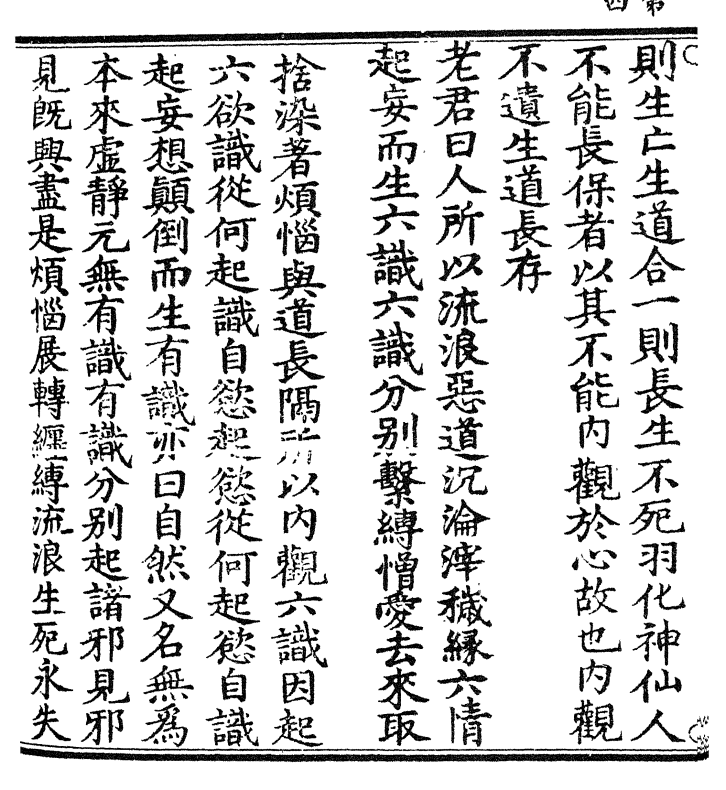 第四
則生亡生道合一則長生不死羽化神仙人
不能長保者以其不能内觀於心故也内觀
不遺生道長存
老君曰人所以流浪惡道沉淪滓穢縁六情
起妄而生六識六識分别繫縛憎愛去來取
捨染著煩惱與道長隔所以内觀六識因起
六欲識從何起識自慾起慾從何起慾自識
起妄想顛倒而生有識亦曰自然又名無爲
本來虛靜元無有識有識分别起諸邪見邪
見旣興盡是煩惱展轉纒縛流浪生死永失